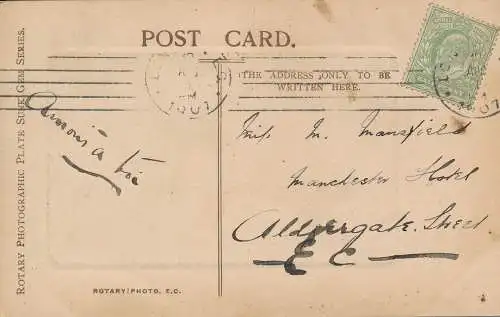 POST CARD.
THE ADDRESS ONLY TO BE
WRITTEN HERE.
1907
ROTARY PHOTOGRAPHIC PLATE SUNK GEM SERIES.
à toi
Miss M. Mansfield
Manchester Hotel
Aldersgate. Street
E C
ROTARY PHOTO, E.C.